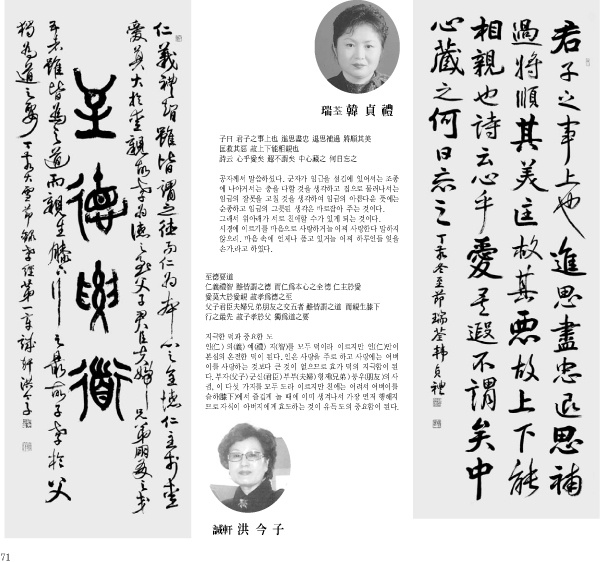 瑞荃 韓 貞 禮
子曰 君子之事上也 進思盡忠 退思補過 將順其美
匡救其惡 故上下能相親也
詩云 心乎愛矣 遐不謂矣 中心藏之 何日忘之
공자께서 말씀하셨다. 군자가 임금을 섬김에 있어서는 조정
에 나아가서는 충을 다할 것을 생각하고 집으로 물러나서는
임금의 잘못을 고칠 것을 생각하여 임금의 아름다운 뜻에는
순종하고 임금의 그릇된 생각은 바로잡아 주는 것이다.
그래서 위아래가 서로 친애할 수가 있게 되는 것이다.
시경에 이르기를 마음으로 사랑하거늘 어찌 사랑한다 말하지
않으리. 마음 속에 언제나 품고 있거늘 어찌 하루인들 잊을
손가.라고 하였다.
至德要道
仁義禮智 雖皆謂之德 而仁爲本心之全德 仁主於愛
愛莫大於愛親 故孝爲德之至
父子君臣夫婦兄弟朋友之交五者 雖皆謂之道 而親生膝下
行之最先 故子孝於父 獨爲道之要
지극한 덕과 중요한 도
인(仁)의(義)예(禮)지(智)를 모두 덕이라 이르지만 인(仁)만이
본심의 온전한 덕이 된다. 인은 사랑을 주로 하고 사랑에는 어버
이를 사랑하는 것보다 큰 것이 없으므로 효가 덕의 지극함이 된
다. 부자(父子)군신(君臣)부부(夫婦)형제(兄弟)붕우(朋友)의 사
귐, 이 다섯 가지를 모두 도라 이르지만 친애는 어려서 어버이를
슬하(膝下)에서 즐겁게 놀 때에 이미 생겨나서 가장 먼저 행해지
므로 자식이 아버지에게 효도하는 것이 유독 도의 중요함이 된다.
誠軒 洪 今 子
君子之事上也進思盡忠退思補
過將順其美匡救其惡故上下能
相親也詩云心乎愛矣遐不謂矣中
心藏之何日忘之 丁亥冬至節 瑞荃韓貞禮
至德要道
仁義禮智雖皆謂之德而仁爲本心之全德仁主於愛
愛莫大於愛親故孝爲德之至父子君臣夫婦兄弟朋友之交
五者雖皆謂之道而親生膝下行之最先故子孝於父
獨爲道之要 丁亥大雪節錄孝經第一章 誠軒洪今子
71